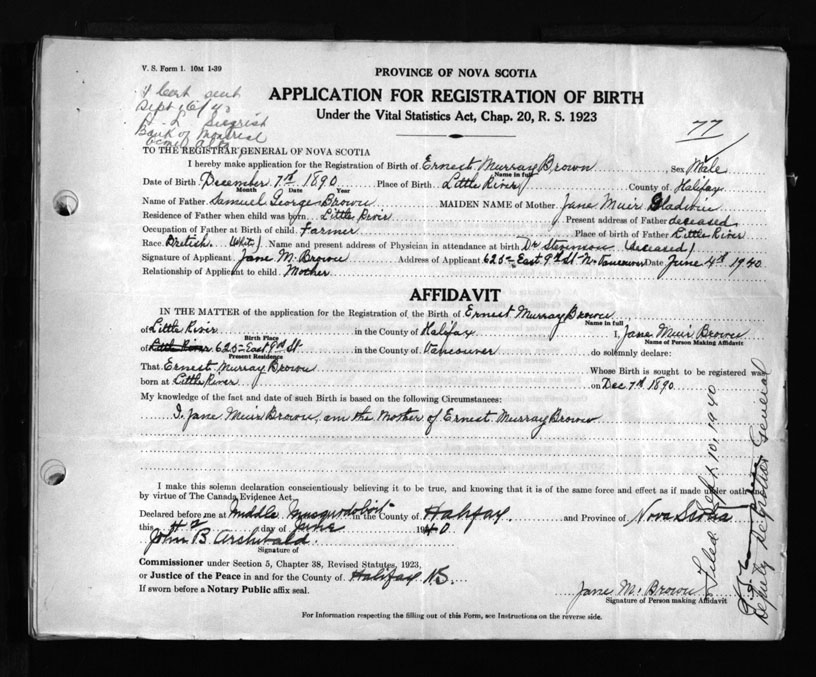 V. S. Form 1. 10M 1-39
PROVINCE OF NOVA SCOTIA
APPLICATION FOR REGISTRATION OF BIRTH
Under the Vital Statistics Act, Chap. 20, R. S. 1923
1 Cert sent
Sept 16/40
Bank of Montreal
77
TO THE REGISTRAR GENERAL OF NOVA SCOTIA
I hereby make application for the Registration of Birth of Ernest Murray Brown Sex Male
Name in full
Date of Birth December 7th 1890 Place of Birth Little River County of Halifax
Month Day Year
Name of Father Samuel George Brown MAIDEN NAME of Mother Jane Muir Gladwin
Residence of Father when child was born Little River Present address of Father deceased
Occupation of Father at Birth of child Farmer Place of birth of Father Little River
Race British (White) Name and present address of Physician in attendance at birth Dr Stevenson (deceased)
Signature of Applicant Jane M. Brown Address of Applicant 625 East 9th St N. Vancouver Date June 4th 1940
Relationship of Applicant to child Mother
AFFIDAVIT
IN THE MATTER of the application for the Registration of the Birth of Ernest Murray Brown
Name in full
of Little River in the County of Halifax I, Jane Muir Brown
Birth Place Name of Person Making Affidavit
of Little River 625 East 9th St in the County of Vancouver do solemnly declare:
Present Residence
That Ernest Murray Brown Whose Birth is sought to be registered was
born at Little River on Dec 7th 1890
My knowledge of the fact and date of such Birth is based on the following Circumstances:
I, Jane Muir Brown, am the Mother of Ernest Murray Brown
I make this solemn declaration conscientiously believing it to be true, and knowing that it is of the same force and effect as if made under oath
by virtue of The Canada Evidence Act.
Declared before me at Middle Musquodoboit in the County of Halifax and Province of Nova Scotia
this 4th day of June 1940
John B Archibald
Signature of
Commissioner under Section 5, Chapter 38, Revised Statutes, 1923,
or Justice of the Peace in and for the County of Halifax N.S.
If sworn before a Notary Public affix seal.
Jane M. Brown
Signature of Person making Affidavit
For Information respecting the filling out of this Form, see Instructions on the reverse side.
Filed Sept. 10, 1940
Deputy Registrar General